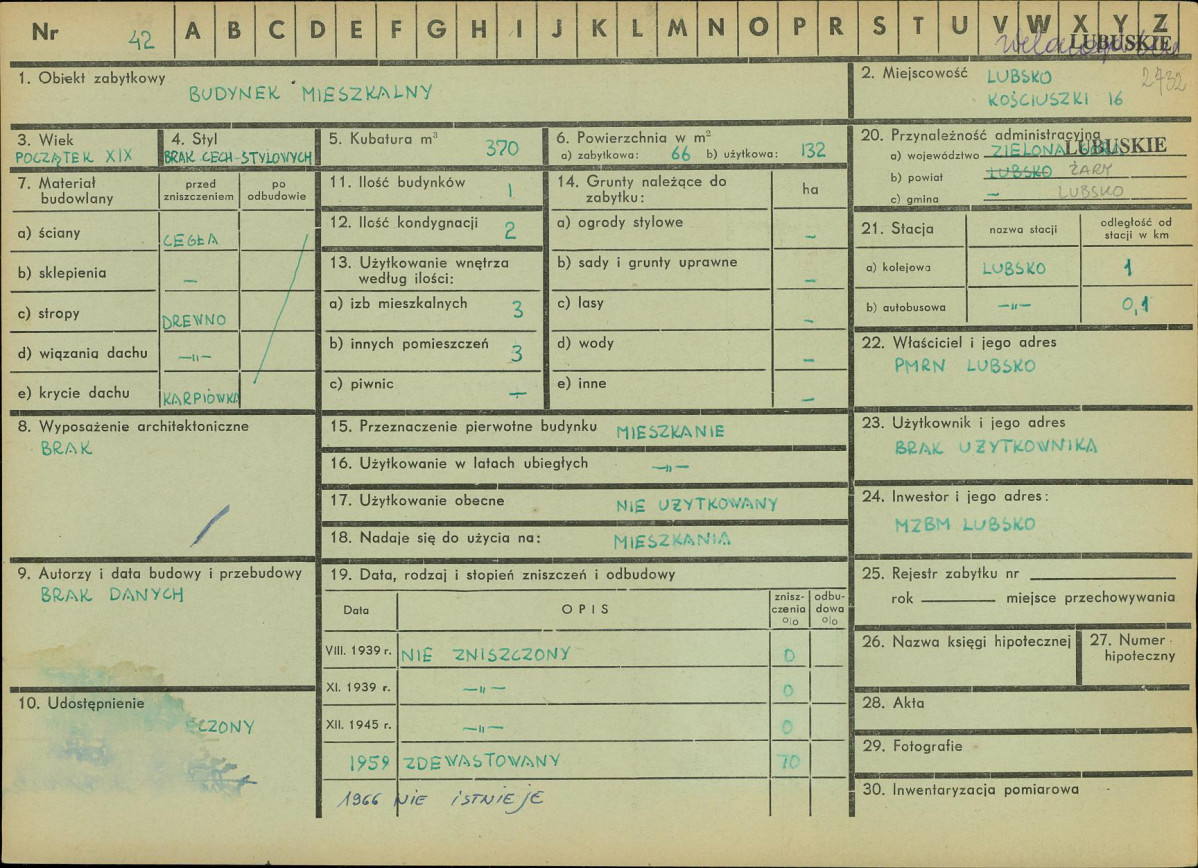 Nr 42 A B C D E F G H I J K L M N O P R S T U V W X Y Z
LUBUSKIE
2732
1. Obiekt zabytkowy
BUDYNEK MIESZKALNY
2. Miejscowość LUBSKO
KOŚCIUSZKI 16
3. Wiek
POCZĄTEK XIX
4. Styl
BRAK CECH STYLOWYCH
5. Kubatura m³ 370
6. Powierzchnia w m²
a) zabytkowa: 66 b) użytkowa: 132
20. Przynależność administracyjna
a) województwo ZIELONA GÓRA LUBUSKIE
b) powiat LUBSKO ŻARY
c) gmina – LUBSKO
7. Materiał budowlany
przed zniszczeniem
po odbudowie
a) ściany CEGŁA
b) sklepienia –
c) stropy DREWNO
d) wiązania dachu –„–
e) krycie dachu KARPIÓWKA
11. Ilość budynków 1
12. Ilość kondygnacji 2
13. Użytkowanie wnętrza
według ilości:
a) izb mieszkalnych 3
b) innych pomieszczeń 3
c) piwnic –
14. Grunty należące do
zabytku: ha
a) ogrody stylowe –
b) sady i grunty uprawne –
c) lasy –
d) wody –
e) inne –
21. Stacja
nazwa stacji
odległość od
stacji w km
a) kolejowa LUBSKO 1
b) autobusowa –„– 0,1
22. Właściciel i jego adres
PMRN LUBSKO
8. Wyposażenie architektoniczne
BRAK
15. Przeznaczenie pierwotne budynku MIESZKANIE
16. Użytkowanie w latach ubiegłych –„–
17. Użytkowanie obecne NIE UŻYTKOWANY
18. Nadaje się do użycia na: MIESZKANIA
23. Użytkownik i jego adres
BRAK UŻYTKOWNIKA
24. Inwestor i jego adres:
MZBM LUBSKO
9. Autorzy i data budowy i przebudowy
BRAK DANYCH
19. Data, rodzaj i stopień zniszczeń i odbudowy
Data
OPIS
znisz-
czenia
%
odbu-
dowa
%
VIII. 1939 r. NIE ZNISZCZONY 0
XI. 1939 r. –„– 0
XII. 1945 r. –„– 0
1959 ZDEWASTOWANY 70
1966 NIE ISTNIEJE
25. Rejestr zabytku nr
rok miejsce przechowywania
26. Nazwa księgi hipotecznej
27. Numer
hipoteczny
10. Udostępnienie
ECZONY
28. Akta
29. Fotografie
30. Inwentaryzacja pomiarowa